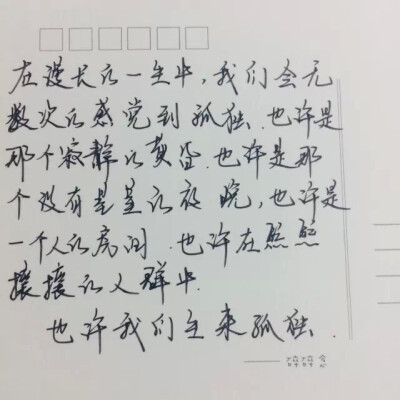 在漫长的一生中，我们会无
数次的感觉到孤独.也许是
那个寂静的黄昏.也许是那
个没有星星的夜晚，也许是
一个人的房间.也许在熙熙
攘攘的人群中.
也许我们生来孤独.
——碎碎念